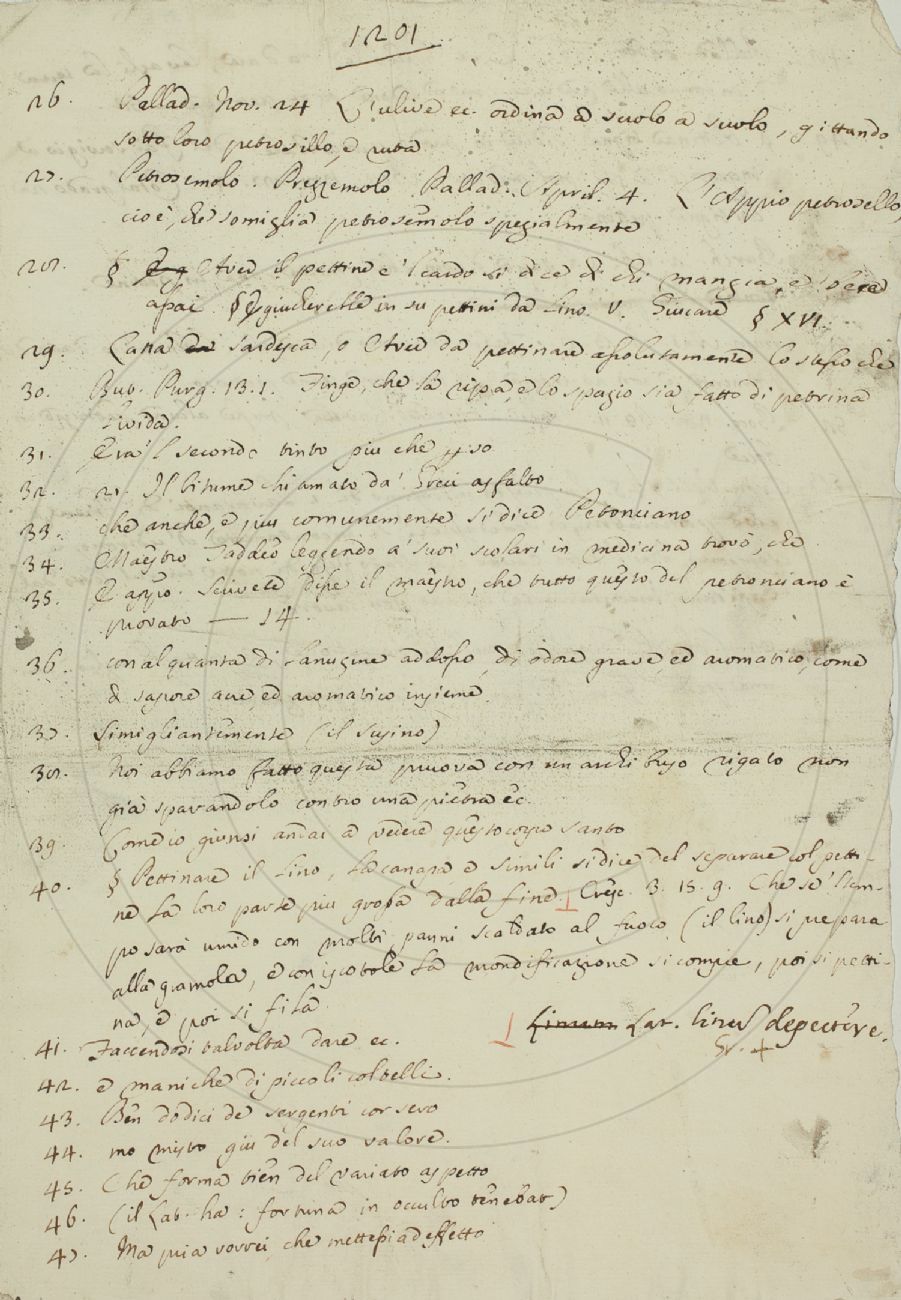 1201
26. Pallad. Nov. 24 L'ulive ec. ordina a suolo a suolo, gittando
sotto loro petrosillo, e ruta
27. Petrosemolo. Prezzemolo Pallad. April. 4. L'Appio petrosello,
cioè, che somiglia petrosemolo spezialmente
28. § Aver il pettine e 'l cardo si dice di chi mangia, e bere
assai. § E giucherebbe in su pettini da Lino. V. Giucare § XVI.
29. Catta sardesca, o Aver da pettinare assolutamente lo stesso che
30. But. Purg. 13. 1. Finge, che la ripa, e lo spazio sia fatto di petrina
livida.
31. Era 'l secondo tinto più che perso
32. 2. Il bitume chiamato da' Greci asfalto
33. che anche, e più comunemente si dice Petonciano
34. Maestro Taddeo leggendo a' suoi scolari in medicina trovò, che
35. E appo. Scrivete disse il maestro, che tutto questo del petronciano è
provato — 14.
36. con alquanta di lanugine addosso, di odore grave, ed aromatico, come
di sapore acre, ed aromatico insieme.
37. Simigliantemente (il susino)
38. Noi abbiamo fatto questa pruova con un archibuso rigato non
già sparandolo contro una pietra ec.
39. Com'io giunsi andai a vedere questo corpo santo
40. § Pettinare il Lino, la canapa e simili si dice del separare col petti-
ne la loro parte più grossa dalla fine. Cresc. 3. 15. 9. Che se 'l tem-
po sarà umido con molti panni scaldato al fuoco (il lino) si prepara
alla gramola, e con iscotole la mondificazione si compie, poi si petti-
na, e poi si fila.
Linum Lat. linum depectere.
Gr. +
41. Faccendosi talvolta dare ec.
42. e maniche di piccoli coltelli.
43. Ben dodici de sergenti corsero
44. mo misto giu del suo valore.
45. Che forma tien del variato aspetto
46. (il Lat. ha: fortuna in occulto tenebat)
47. Ma pria vorrei, che mettessi ad effetto